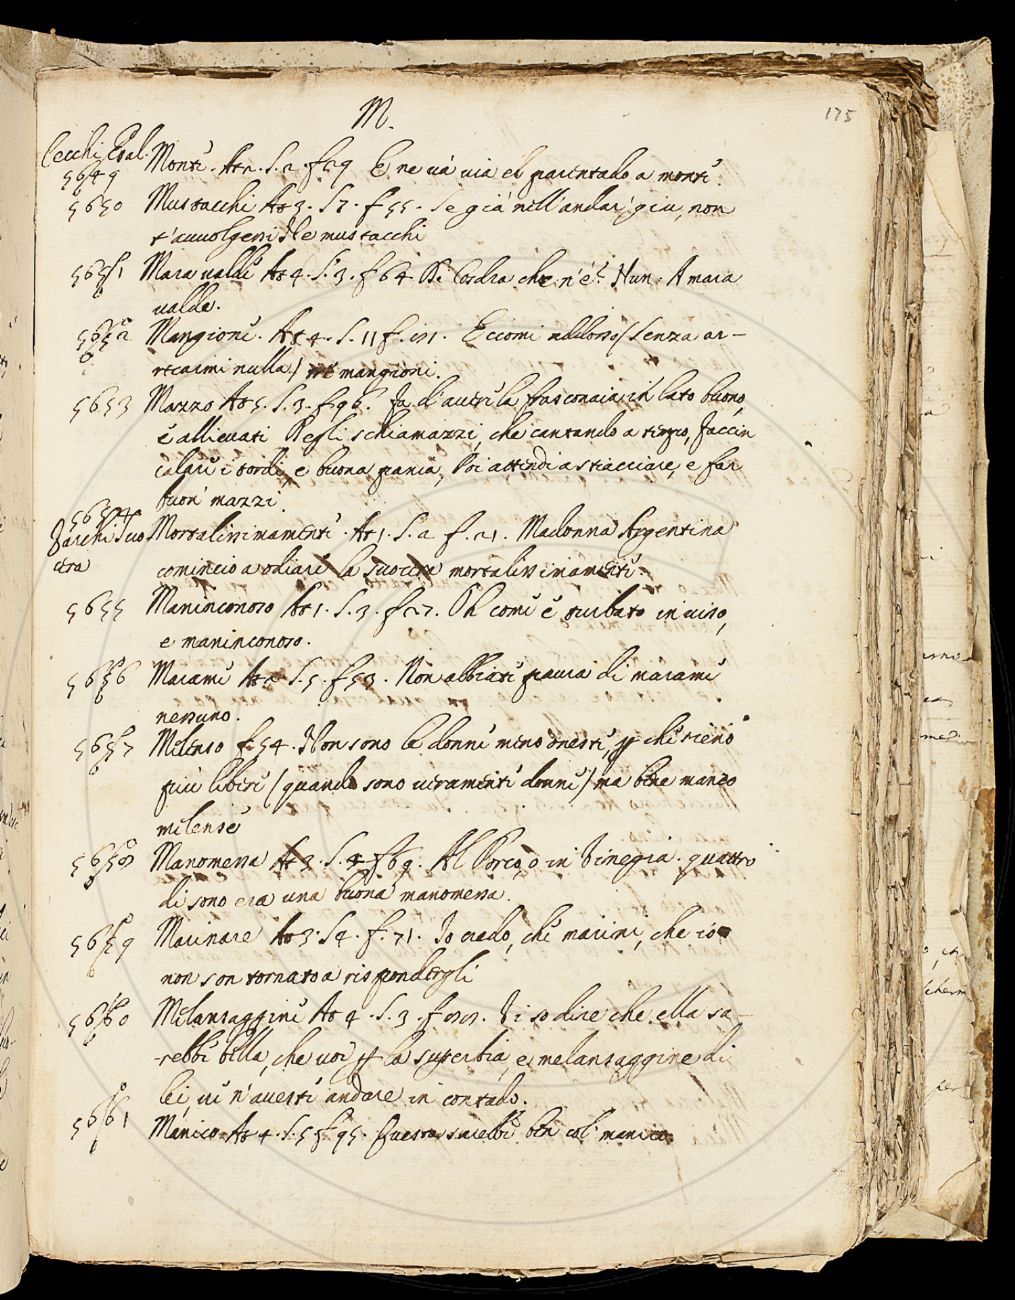 M.
175
Cecchi Esal.
5649 Monti. At 2. S. 2. f 29 E ne và via el parentado a monti.
5650 Mustacchi At 3. S 7. f 55. Se già nell'andar giu, non
t'avvolgessi Ne mustacchi
5651 Mara valde At 4. S. 3. f 64. che n'è? Nun. Amara
valde.
5652 Mangioni. At 4. S. 11 f. Eccomi addosso (senza ar-
recarmi nulla) mangioni.
5653 Mazzo At 5. S. 3. f 96. la frasconaia in lato buono,
e allievati Begli schiamazzi, che cantando a tempo, faccin
calare i tordi, e buona pania, Poi attendi a stiacciare, e far
buon mazzi.
5654
Varchi Suo
cera
Mortalissimamente. At 1. S. 2 f. 21. Madonna Argentina
cominciò a odiare la suocera mortalissimamente.
5655 Maninconoso At 1. S. 3. f 27. Oh come è turbato in viso,
e maninconoso.
5656 Marame At 2 S. 5. f 53. Non abbiate paura di marame
nessuno.
5657 Milenso f. 54. Non sono le donne meno oneste, che sieno
più libere (quando sono veramente donne) ma bene manco
milense
5658 Manomessa At 3. S. 4 f 69. Al Porco, o in Vinegia. quattro
dì sono era una buona manomessa.
5659 Marinare At 3. S 4. f. 71. Io credo, che marini, che io
non son tornato a rispondergli
5660 Milensaggine At 4. S. 3. f Vi so dire che ella sa-
rebbe bella, che voi la superbia, e melansaggine di
lei, ve n'aveste andare in contado.
5661 Manico At 4. S. 5 f 95. Questa sarebbe ben col manico.